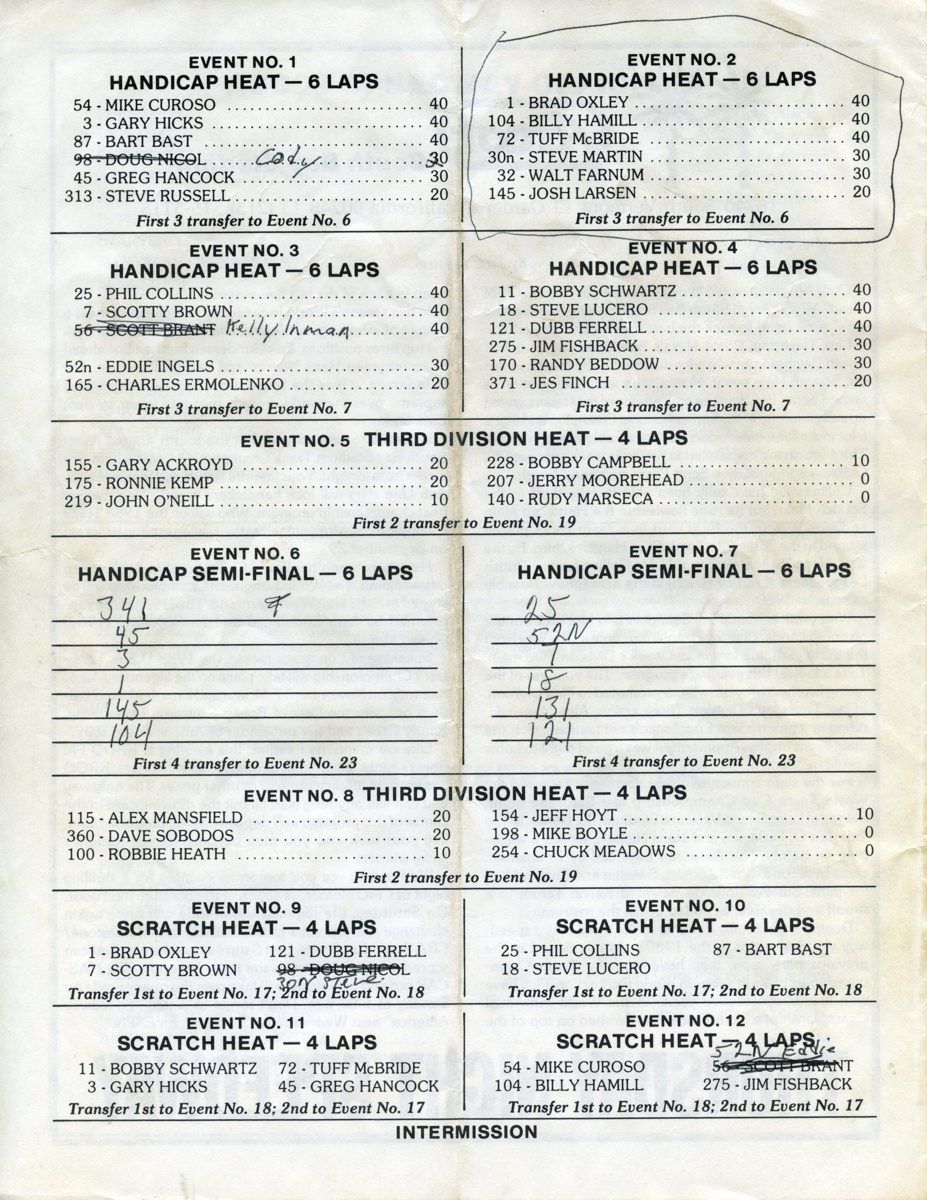 EVENT NO. 1
HANDICAP HEAT — 6 LAPS
54 - MIKE CUROSO 40
3 - GARY HICKS 40
87 - BART BAST 40
98 - DOUG NICOL Cody 30
45 - GREG HANCOCK 30
313 - STEVE RUSSELL 20
First 3 transfer to Event No. 6
EVENT NO. 2
HANDICAP HEAT — 6 LAPS
1 - BRAD OXLEY 40
104 - BILLY HAMILL 40
72 - TUFF McBRIDE 40
30n - STEVE MARTIN 30
32 - WALT FARNUM 30
145 - JOSH LARSEN 20
First 3 transfer to Event No. 6
EVENT NO. 3
HANDICAP HEAT — 6 LAPS
25 - PHIL COLLINS 40
7 - SCOTTY BROWN 40
56 - SCOTT BRANT Kelly Inman 40
52n - EDDIE INGELS 30
165 - CHARLES ERMOLENKO 20
First 3 transfer to Event No. 7
EVENT NO. 4
HANDICAP HEAT — 6 LAPS
11 - BOBBY SCHWARTZ 40
18 - STEVE LUCERO 40
121 - DUBB FERRELL 40
275 - JIM FISHBACK 30
170 - RANDY BEDDOW 30
371 - JES FINCH 20
First 3 transfer to Event No. 7
EVENT NO. 5 THIRD DIVISION HEAT — 4 LAPS
155 - GARY ACKROYD 20
175 - RONNIE KEMP 20
219 - JOHN O'NEILL 10
228 - BOBBY CAMPBELL 10
207 - JERRY MOOREHEAD 0
140 - RUDY MARSECA 0
First 2 transfer to Event No. 19
EVENT NO. 6
HANDICAP SEMI-FINAL — 6 LAPS
341
45
3
1
145
104
First 4 transfer to Event No. 23
EVENT NO. 7
HANDICAP SEMI-FINAL — 6 LAPS
25
52N
7
18
131
121
First 4 transfer to Event No. 23
EVENT NO. 8 THIRD DIVISION HEAT — 4 LAPS
115 - ALEX MANSFIELD 20
360 - DAVE SOBODOS 20
100 - ROBBIE HEATH 10
154 - JEFF HOYT 10
198 - MIKE BOYLE 0
254 - CHUCK MEADOWS 0
First 2 transfer to Event No. 19
EVENT NO. 9
SCRATCH HEAT — 4 LAPS
1 - BRAD OXLEY 121 - DUBB FERRELL
7 - SCOTTY BROWN 98 - DOUG NICOL
30N Steve
Transfer 1st to Event No. 17; 2nd to Event No. 18
EVENT NO. 10
SCRATCH HEAT — 4 LAPS
25 - PHIL COLLINS 87 - BART BAST
18 - STEVE LUCERO
Transfer 1st to Event No. 17; 2nd to Event No. 18
EVENT NO. 11
SCRATCH HEAT — 4 LAPS
11 - BOBBY SCHWARTZ 72 - TUFF McBRIDE
3 - GARY HICKS 45 - GREG HANCOCK
Transfer 1st to Event No. 18; 2nd to Event No. 17
EVENT NO. 12
SCRATCH HEAT — 4 LAPS
52N Eddie
54 - MIKE CUROSO 56 - SCOTT BRANT
104 - BILLY HAMILL 275 - JIM FISHBACK
Transfer 1st to Event No. 18; 2nd to Event No. 17
INTERMISSION